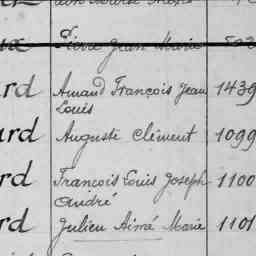 Pierre Jean Marie
ard Amand François Jean 1439
Louis
ard Auguste Clément 1099
ard François Louis Joseph 1100
André
ard Julien Aimé Marie 1101